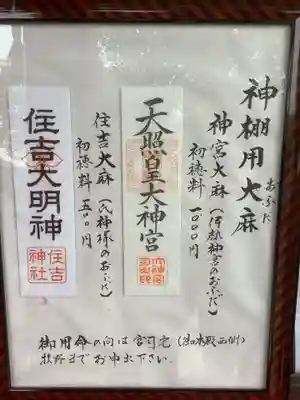 神棚用大麻
おふだ
神宮大麻(伊勢神宮のおふだ)
初穂料 一、〇〇〇円
天照皇大神宮
住吉大麻(氏神様のおふだ)
初穂料 五〇〇円
住吉大明神
住吉
神社
御用命の向は宮司宅
牧野までお申出下さい。